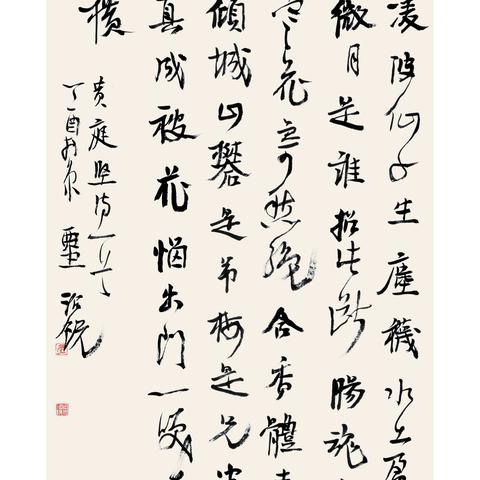 凌波仙子生塵襪水上盈
微月是誰招此斷腸魂
寒花寄愁絶含香體素
傾城山礬是弟梅是兄坐
真成被花惱出門一笑大
橫
黄庭堅詩一首
丁酉於京